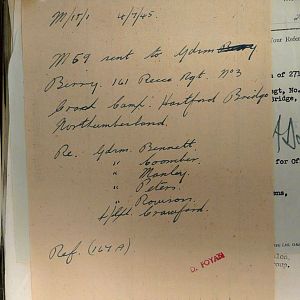 M/15/1 4/7/45.
M59 sent to Gdrm
Berry. 161 Recce Rgt. No 3
Camp. Hartford Bridge
Northumberland.
Re. Gdrm. Bennett.
" Coomber.
" Manley.
" Peters.
" Rowson.
Crawford.
Ref. (164A).
D. FOYAN
Your Refere
of 27
gt, No.
ridge,
for Of
ens,